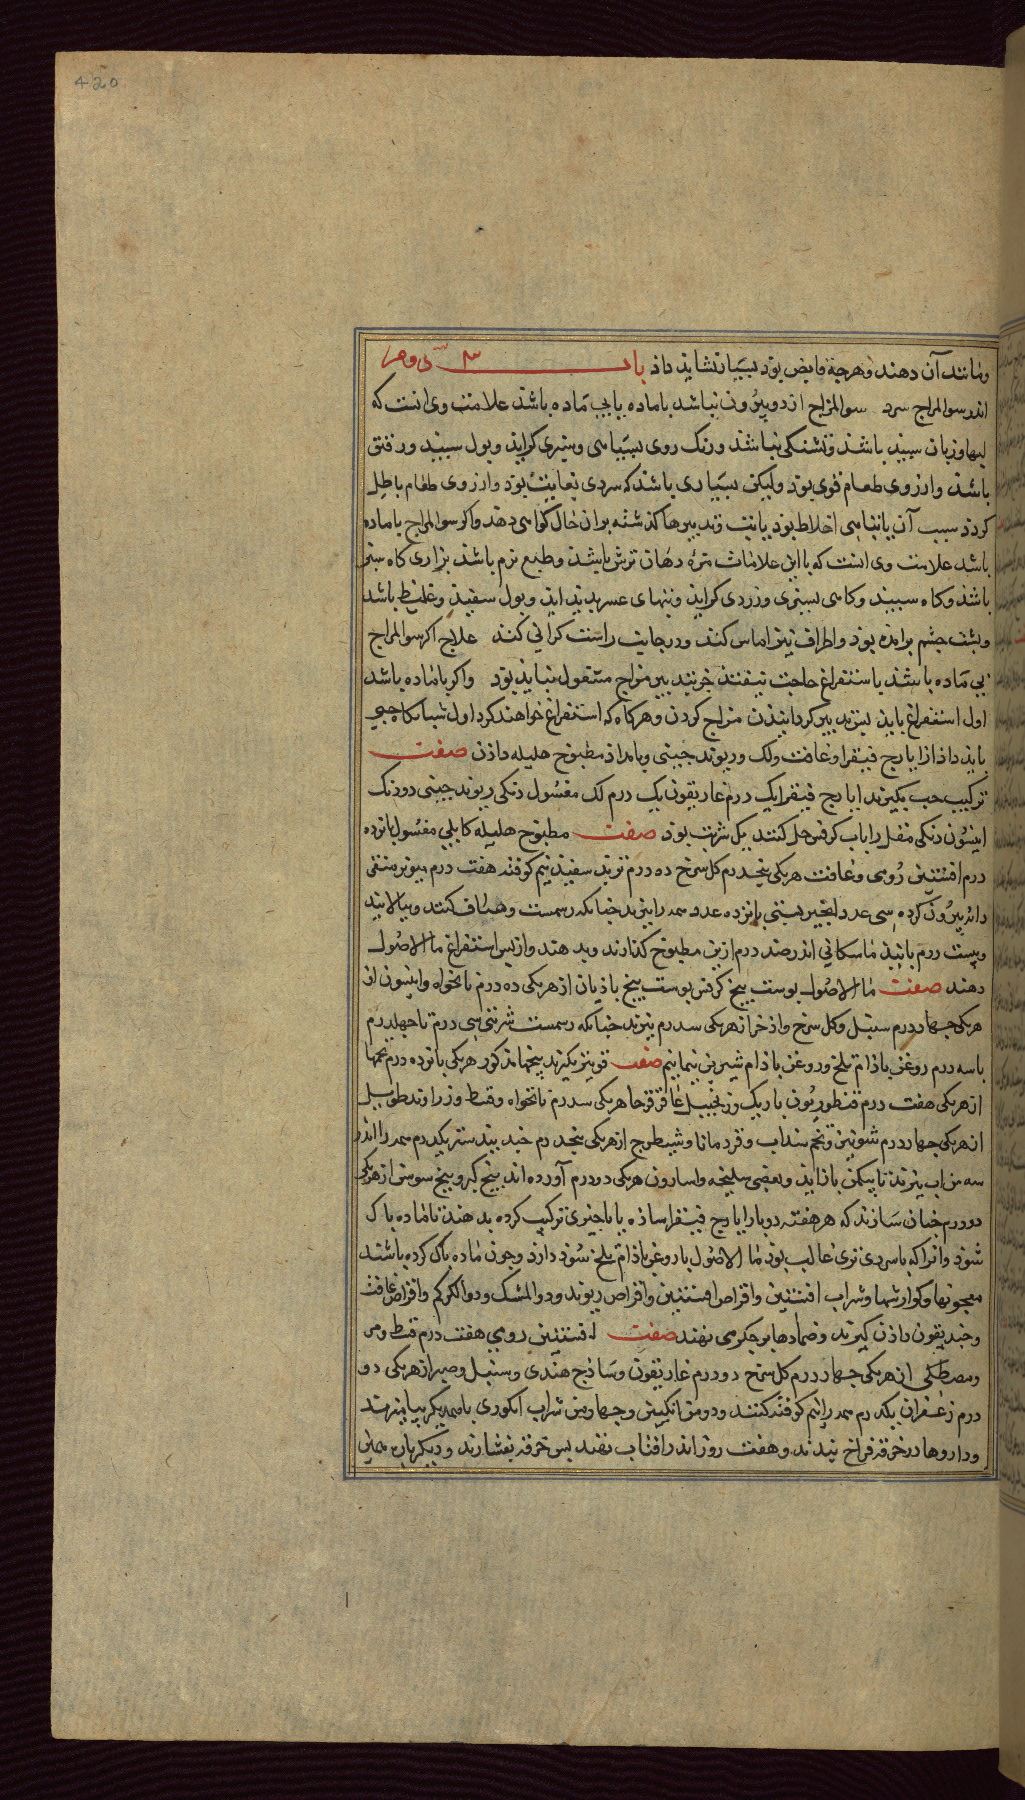 420
ومانند آن دهند وهرچه قابض بود بسیار نشاید داذ باب
اندر سوالمزاج سرد سوالمزاج از دو بیرون نباشد باماده یا بی ماده باشد علامت وی انست که
لبها وزبان سپید باشد وتشنکی نباشد ورنک روی بسیاهی وسبزی کراید وبول سپید ورقیق
باشد وارزوی طعام قوی بود ولیکن بسیاری باشد که سردی بغایت بود وارزوی طعام باطل
کردد سبب آن یا تباهی اخلاط بود یا تب وتدبیرها کذشته بران حال کواهی دهد واکر سوالمزاج باماده
باشد علامت وی انست که با این علامات مزه دهان ترش باشد وطبع نرم باشد براری کاه سبز
باشد وکاه سپید وکاهی بسبزی وزردی کراید وتبهای عسر پدید اید وبول سفید وغلیظ باشد
وپشت چشم برامده بود واطراف نیز اماس کند ودر جانب راست کرانی کند علاج اکر سوالمزاج
بی ماده باشد باستفراغ حاجت نیفتد جز بتدبیر مزاج مشغول نباید بود واکر باماده باشد
اول استفراغ باید پس تدبیر کردانیدن مزاج کردن وهرکاه که استفراغ خواهند کرد اول شبانکاه حبی
باید داد از ایارج فیقرا وغافت ولک وریوند چینی وبامداد مطبوخ هلیله دادن صفت
ترکیب حب بکیرند ایارج فیقرا یک درم غاریقون یک درم لک مغسول دنکی ریوند چینی دودنک
انیسون دنکی مقل را باب کرفس حل کنند یک شربت بود صفت مطبوخ هلیله کابلی مغسول پانزده
درم افسنتین رومی وغافت هریکی پنجدرم کل سرخ ده درم تربد سفید نیم کوفته هفت درم مویز منقی
دانه بیرون کرده سی عدد انجیر بستی پانزده عدد همه را بپزند چنانکه رسمست وصاف کنند وبپالایند
وبیست درم پانید ماسکانی اندر صد درم ازین مطبوخ کدازند وبدهند وازپس استفراغ ما الاصول
دهند صفت ما الاصول پوست بیخ کرفس پوست بیخ بادیان از هریکی ده درم نانخواه وانیسون از
هریکی چهار درم سنبل وکل سرخ واذخر از هریکی سدرم بپزند چنانکه رسمست شربتی سی درم تا چهلدرم
با سه درم روغن باذام تلخ وروغن باذام شیرین نیمانیم صفت قویتر بکیرند بیخها مذکور هریکی پانزده درم تخمها
از هریکی هفت درم قنطوریون باریک وزنجبیل عاقرقرحا هریکی سدرم نانخواه وقسط وزراوند طویل
از هریکی چهار درم شونیز وتخم سنداب وقردمانا وشیطرج از هریکی پنجدرم جندبیدستر یکدرم همه را اندر
سه من اب بپزند تا بیکمن بازاید وبعضی سلیخه واسارون هریکی دودرم آورده اند بیخ کبر وبیخ سوسن از هریکی
دودرم چنان سازند که هر هفته دو بار ایارج فیقرا ساذه یا باچیزی ترکیب کرده بدهند تا ماده پاک
شود وانرا که باسردی تری غالب بود ما الاصول با روغن باذام تلخ سود دارد وچون ماده پاک کرده باشند
معجونها وکوارشها وشراب افسنتین واقراص افسنتین واقراص ریوند ودوالمشک ودوالکرکم واقراص غافت
وجندیقون داذن کیرند وضمادها بر جکر می نهند صفت افسنتین رومی هفت درم قسط ومر
ومصطکی از هریکی چهار درم کل سرخ دودرم غاریقون وساذج هندی وسنبل وصبر از هریکی دو
درم زعفران یکدرم همه را نیم کوفته کنند ودومن انکبین وچهار من شراب انکوری باهمدیکر بیامیزند
وداروها در خرقه فراخ بندند وهفت روز اندر افتاب نهند پس خرقه بفشارند ودیکر باره همین